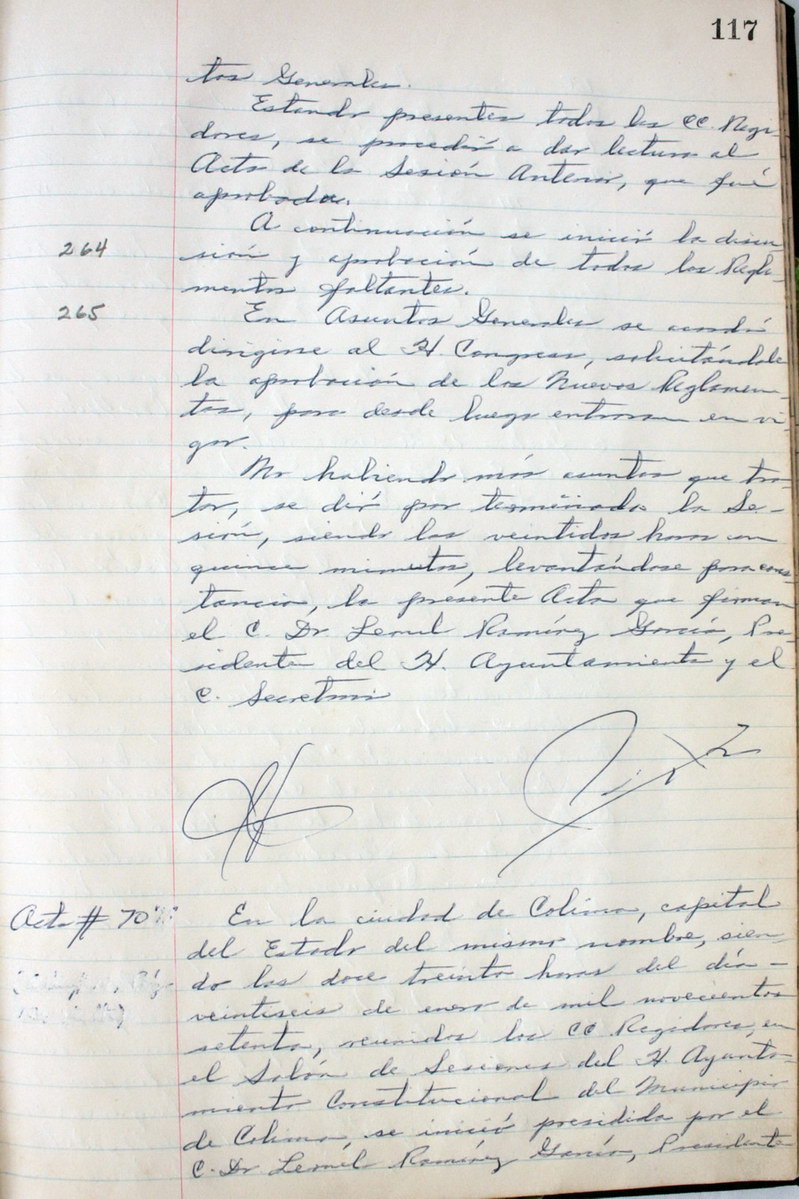 117
tos Generales.
Estando presentes todos los CC. Regi-
dores, se procedió a dar lectura al
Acta de la Sesión Anterior, que fué
aprobada.
264
A continuación se inició la discu
sión y aprobación de todos los Regla-
mentos faltantes.
265
En Asuntos Generales se acordó
dirigirse al H. Congreso, solicitándole
la aprobación de los Nuevos Reglamen-
tos, para desde luego entraran en vi
gor.
No habiendo más asuntos que tra-
tar, se dió por terminada la Se-
sión, siendo las veintidos horas con
quince minutos, levantándose para cons-
tancia, la presente Acta que firman
el C. Dr. Leonel Ramírez García, Pre-
sidente del H. Ayuntamiento y el
C. Secretario
Acta # 70
En la ciudad de Colima, capital
del Estado del mismo nombre, sien-
do las doce treinta horas del día -
veintiseis de enero de mil novecientos
setenta, reunidos los CC Regidores, en
el Salón de Sesiones del H. Ayunta-
miento Constitucional del Municipio
de Colima, se inició presidida por el
C. Dr. Leonel Ramírez García, Presidente